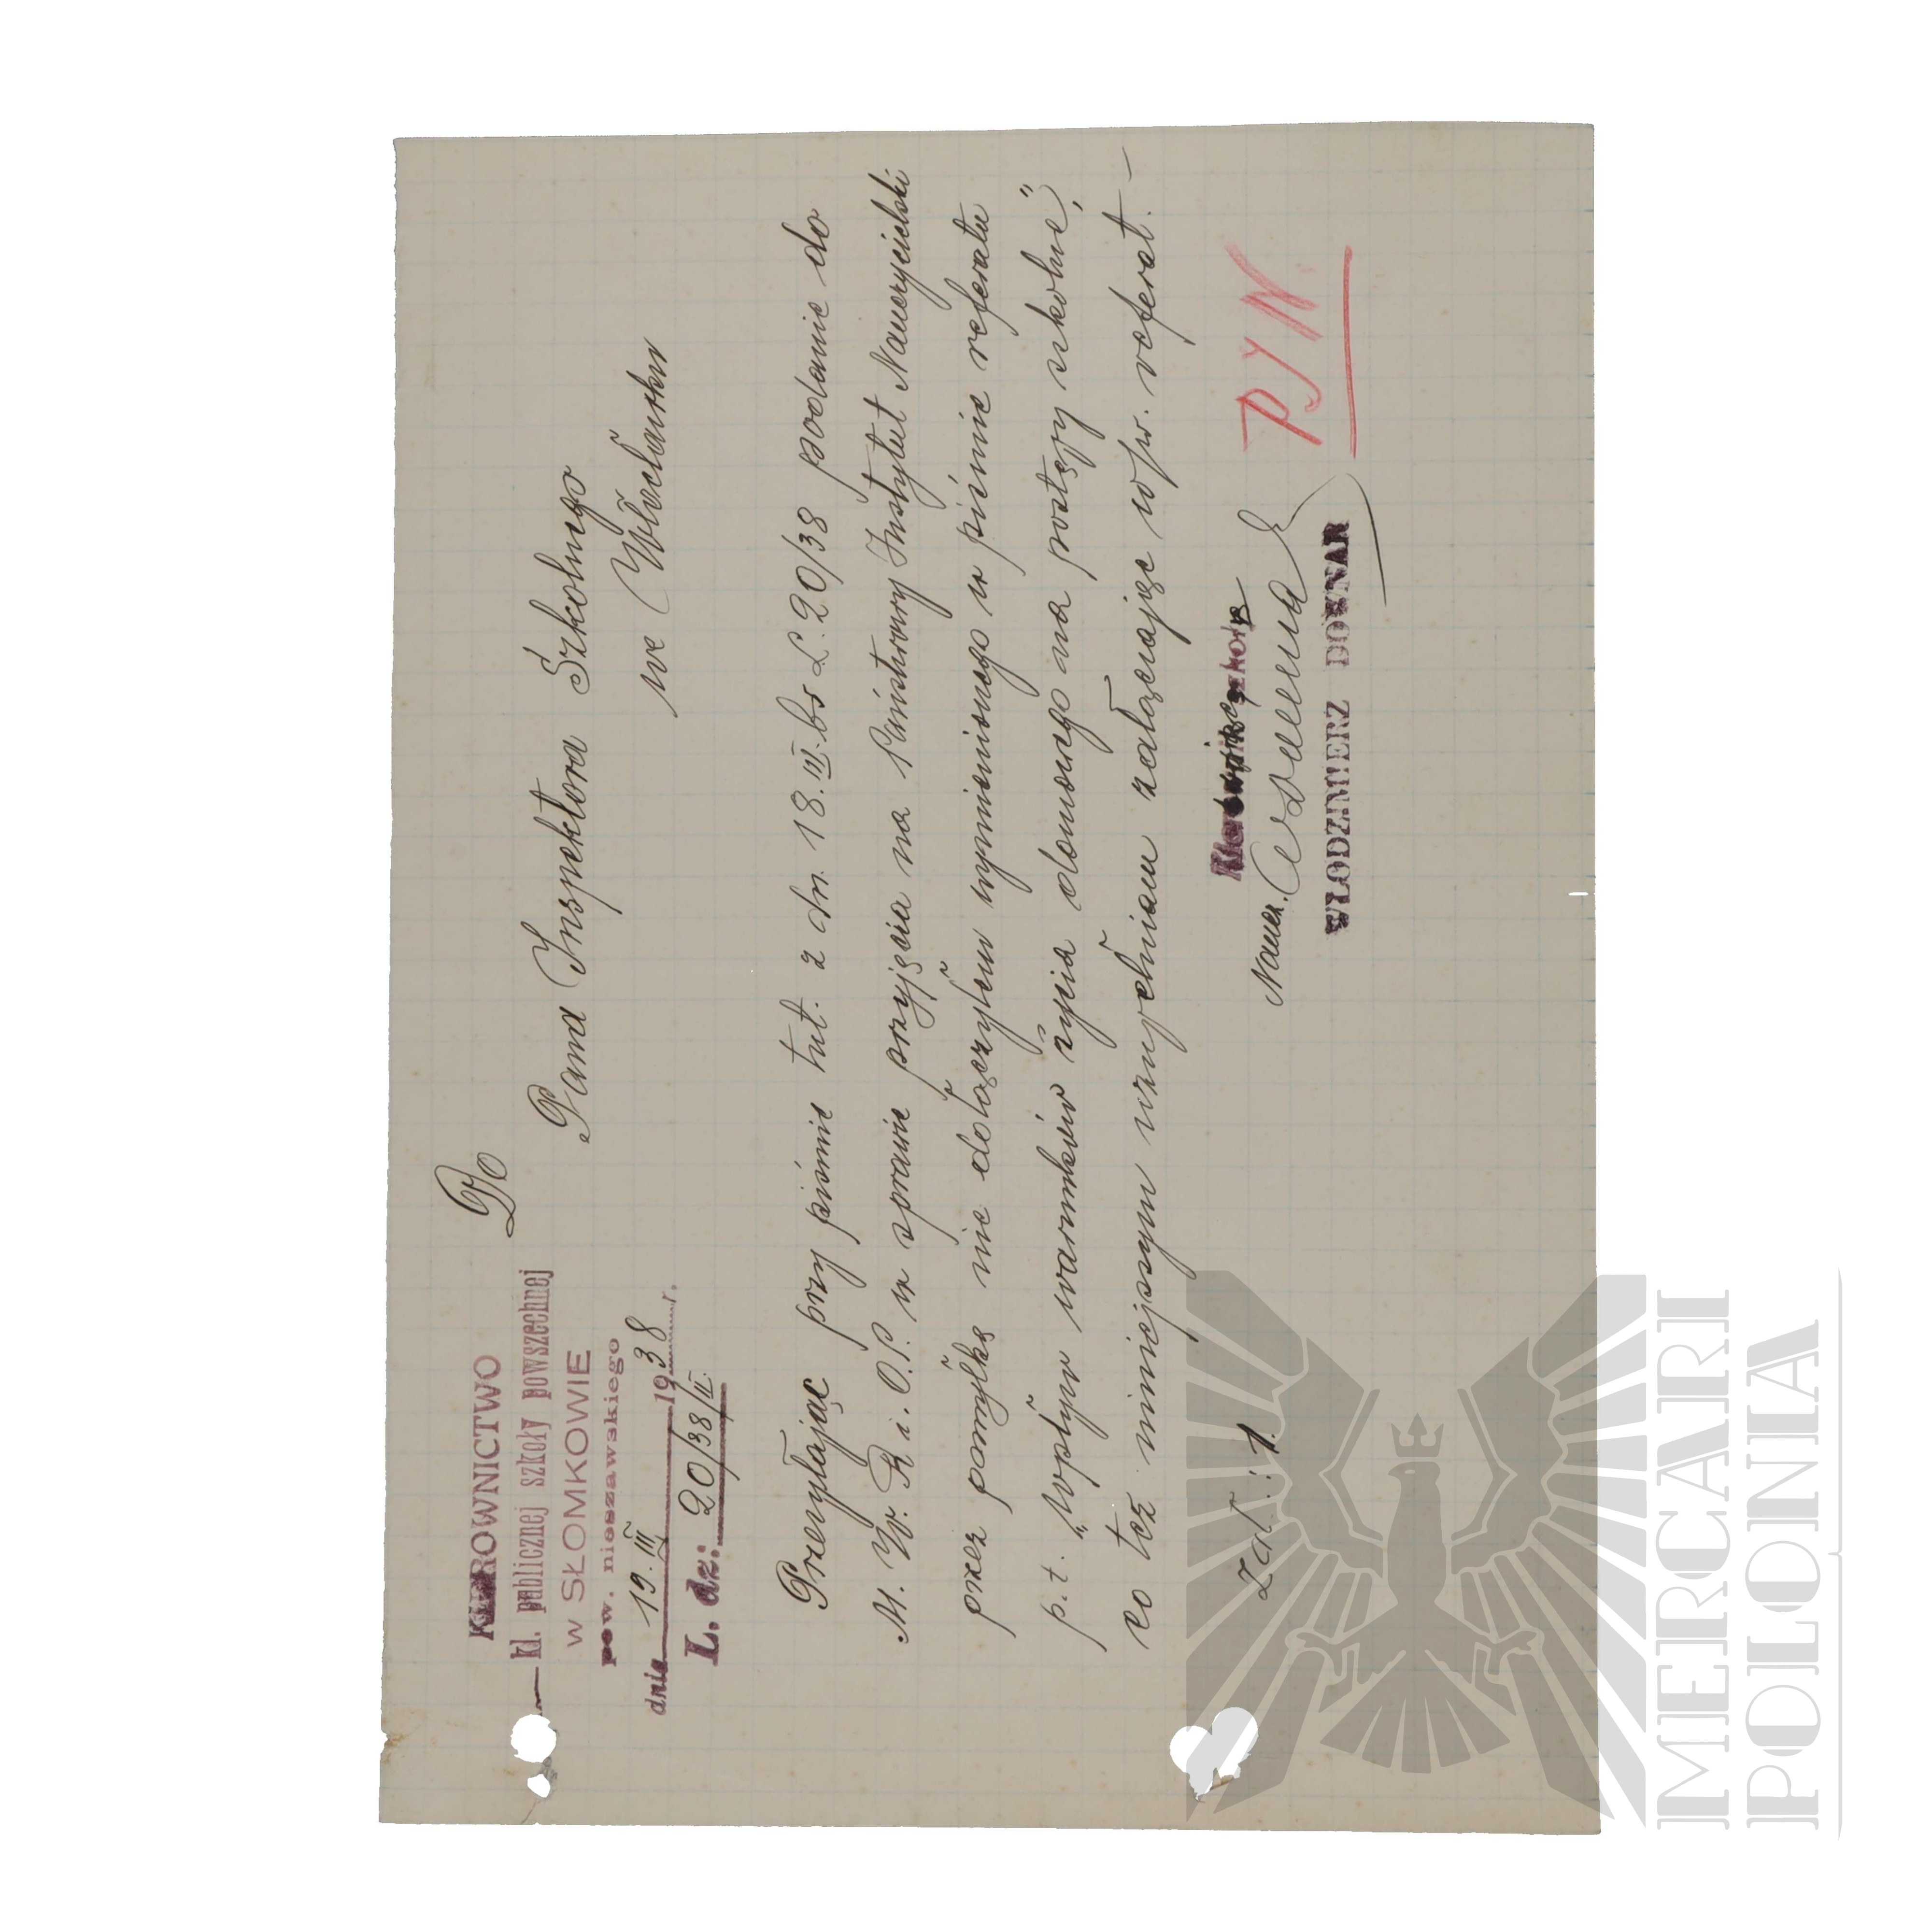 KIEROWNICTWO
— kl. publicznej szkoły powszechnej
W SŁOMKOWIE
pow. nieszawskiego
dnia 19. III 1938 r.
L. dz: 20/38/II.
Do
Pana Inspektora Szkolnego
we Włocławku
Przesyłając przy piśmie tut. z dn. 18. III. br L. 20/38 podanie do
M. W. R. i. O.P. w sprawie przyjęcia na Państwowy Instytut Nauczycielski
przez pomyłkę nie dołączyłem wymienionego w piśmie referatu
p.t. „Wpływ warunków życia domowego na postępy szkolne",
co też niniejszym uzupełniam załączając w/w. referat. —
Zał: 1.
Naucz.
WŁODZIMIERZ DOWNAR
PIN
MERCARI
POLONIA